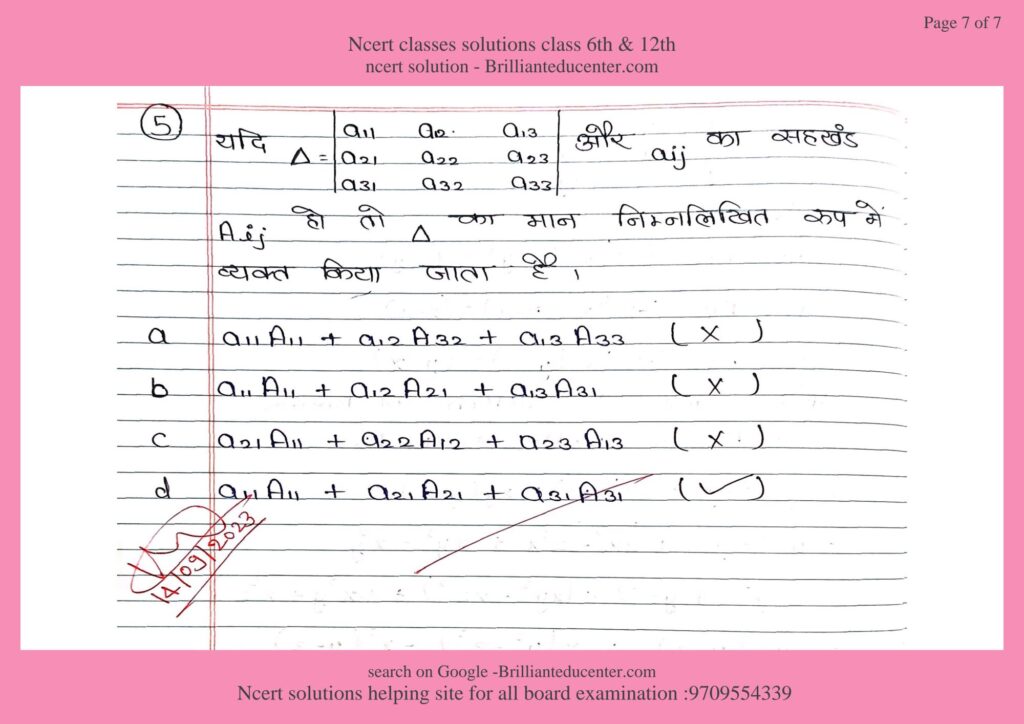 Page 7 of 7
Ncert classes solutions class 6th & 12th
ncert solution - Brillianteducenter.com
5 यदि Δ = | a11 a12 a13 | और aij का सहखंड
| a21 a22 a23 |
| a31 a32 a33 |
Aij हो तो Δ का मान निम्नलिखित रुप में
व्यक्त किया जाता है।
a a11A11 + a12A32 + a13A33 (×)
b a11A11 + a12A21 + a13A31 (×)
c a21A11 + a22A12 + a23A13 (×)
d a11A11 + a21A21 + a31A31 (✓)
14/09/2023
search on Google -Brillianteducenter.com
Ncert solutions helping site for all board examination :9709554339